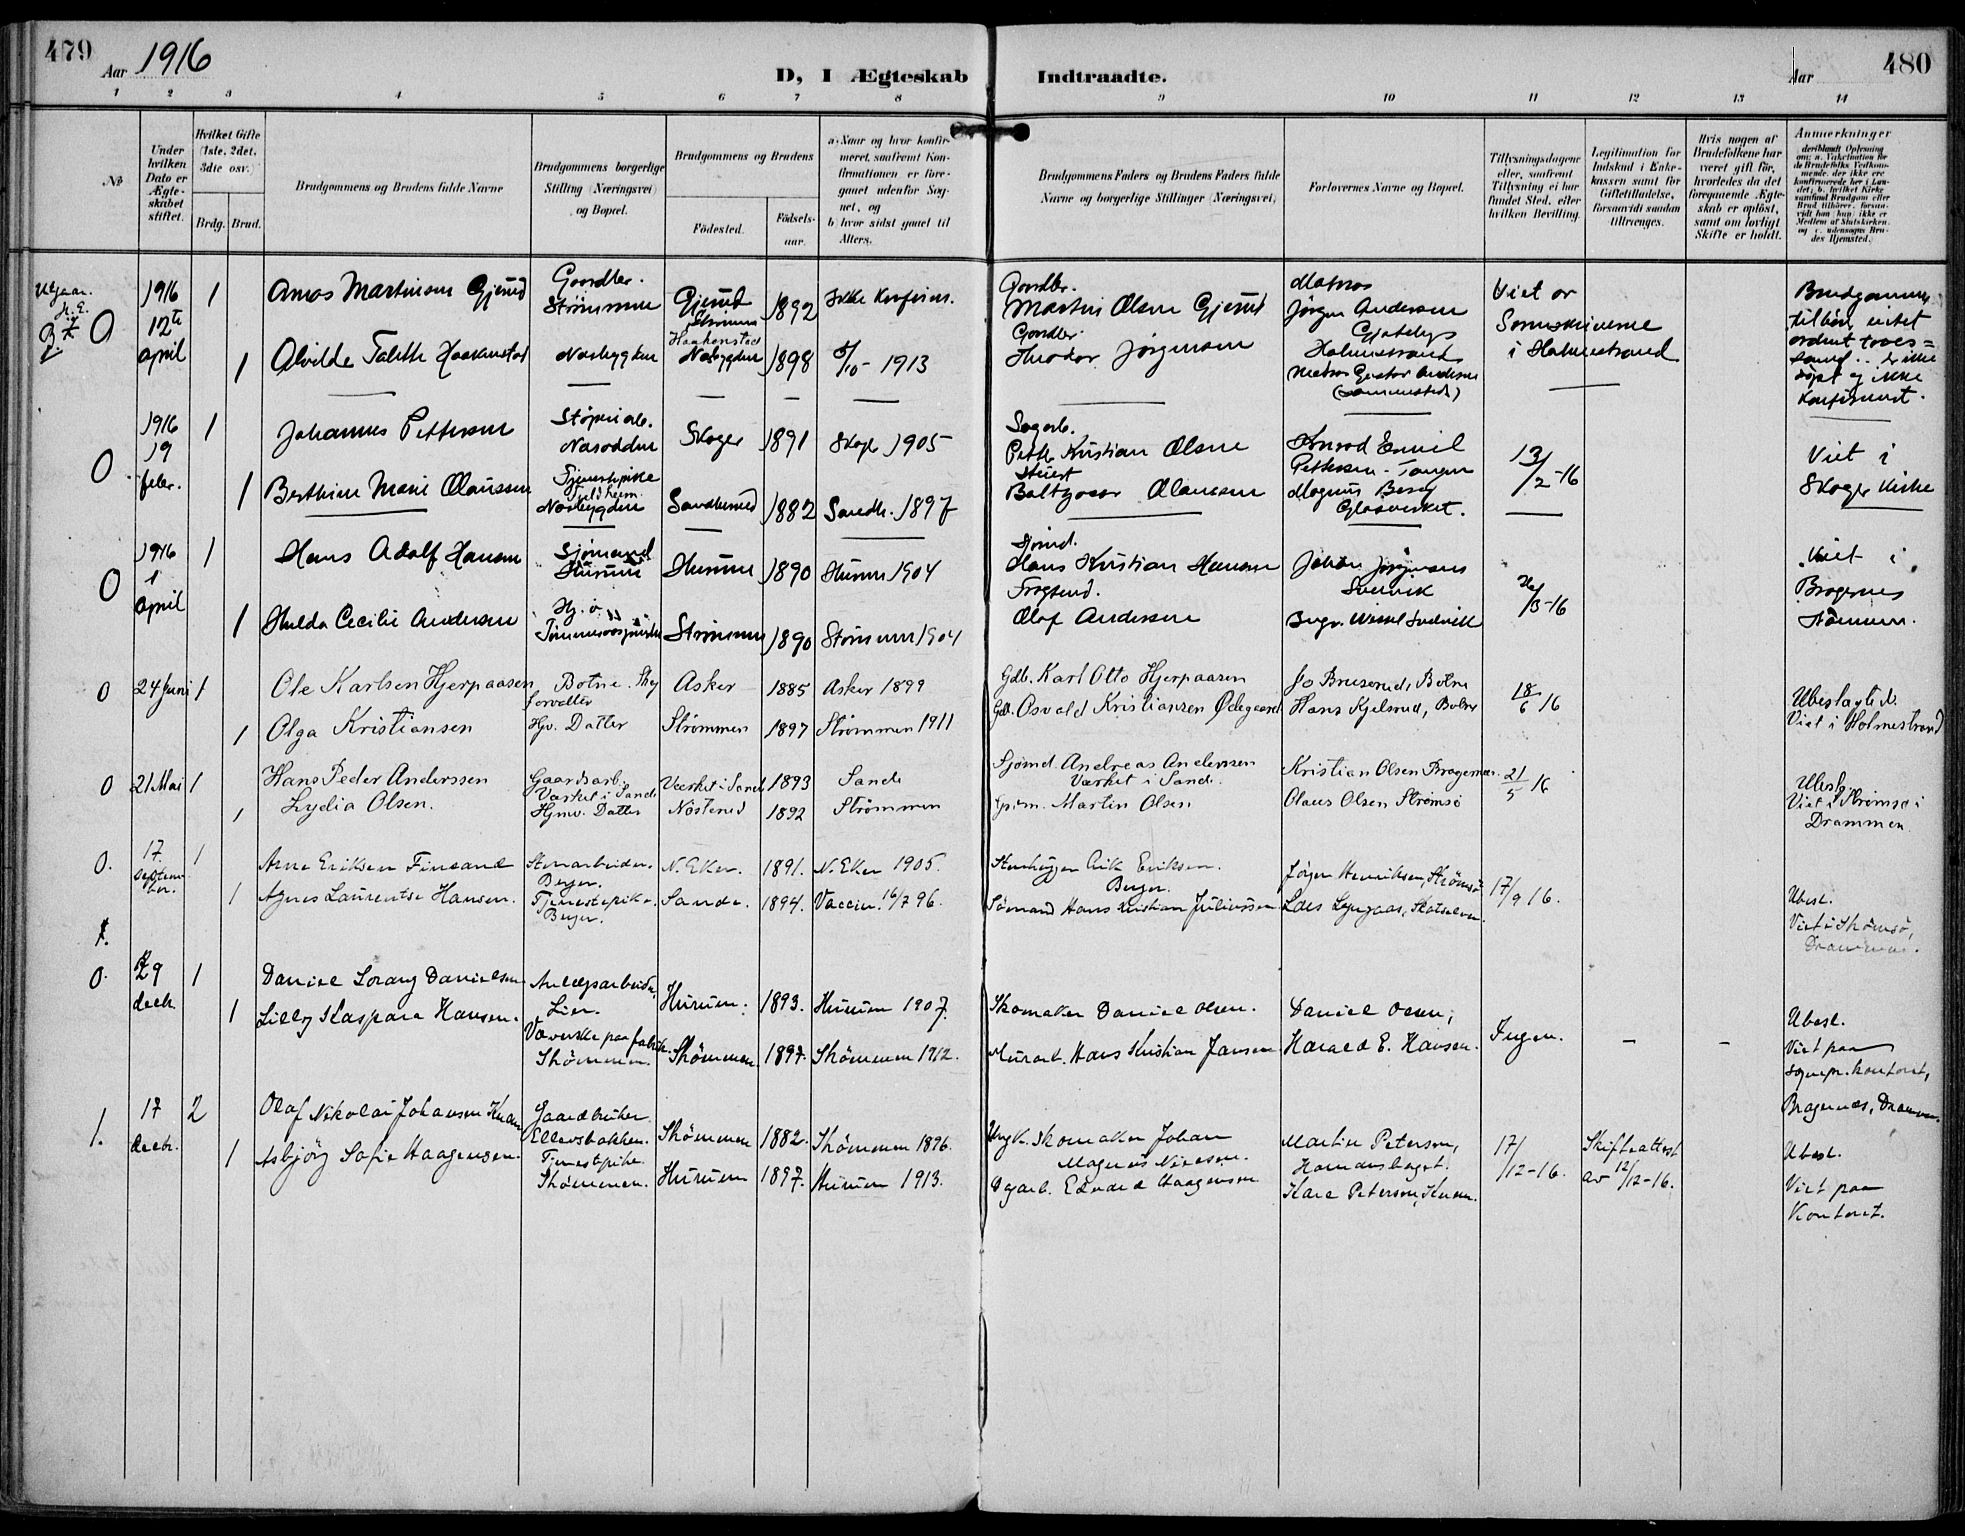 479
Aar 1916
D, I Ægteskab Indtraadte.
Aar
480
1 2 3 4 5 6 7 8 9 10 11 12 13 14
No
Under hvilken Dato er Ægteskabet stiftet.
Hvilket Gifte (1ste, 2det, 3die osv.)
Brdg. Brud.
Brudgommens og Brudens fulde Navne
Brudgommens borgerlige Stilling (Næringsvei) og Bopæl.
Brudgommens og Brudens
Födested.
Födsels-aar.
a. Naar og hvor konfirmeret, saafremt Konfirmationen er foregaaet udenfor Sognet, og
b. hvor sidst gaaet til Alters.
Brudgommens Faders og Brudens Faders fulde Navne og borgerlige Stillinger (Næringsvei)
Forlovernes Navne og Bopæl.
Tillysningsdagene eller, saafremt Tillysning ei har fundet Sted, efter hvilken Bevilling.
Legitimation for Indskud i Enkekassen samt for Giftetilladelse, forsaavidt saadan tiltrænges.
Hvis nogen af Brudefolkene har været gift før, hvorledes da det foregaaende Ægteskab er oplöst, samt om lovligt Skifte er holdt.
Anmerkninger
0 1916 12te april
1 Amos Martinsen Gjerud
Gaardbr. Strömmen
Gjerud Strömm
1892
Ikke konfirm.
Gaardbr. Martin Olsen Gjerud
Matros Jörgen Andersen
Holmestrand
Viet av Sorenskriverne i Holmestrand
1 Alvilde Talette Haakenstad
Nesbygden
Haakenstad Nesbygden
1898
5/10 - 1913
Gaardbr. Theodor Jørgensen
Matros Gustav Andersen (sammesteds)
Brudgommen tilhör intet ordnet troessamf. er ikke döpt og ikke konfirmert.
0 1916 19 febr.
1 Johannes Pettersen
Nesodden
Skoger
1891
Skoger 1905
Sagarb. Petter Kristian Olsen
Konrad Emil Pettersen - Tangen
13/2-16
Viet i Skoger Kirke
1 Berthine Marie Olaussen
Tjenestepike Nesbygden
Sandhered
1882
Sandh. 1897
Baltzaser Olaussen
Magnus Berg Glasverket.
0 1916 1 april
1 Hans Adolf Hansen
Sjömand Hurum
Hurum
1890
Hurum 1904
Sjömd. Hans Kristian Hansen
Johan Jörgensen Svelvik
26/3-16
Viet i Bragernes Drammen.
1 Hulda Cecilie Andersen
Strömmen
1890
Strömmen 1904
Olaf Andersen
Svelvik
0 24 Juni 1
Ole Karlsen Hjerpaasen
Botne. Skogforvalter
Asker
1885
Asker 1899
Gdb. Karl Otto Hjerpaasen
Jo Bruserud, Botne
18/6 16
Ubeslagted.
Viet i Holmestrand
1 Olga Kristiansen
Hjv. Datter
Strømmen
1897
Strømmen 1911
Gdb. Osvald Kristiansen Ødegaard
Hans Kjelsrud, Botne
0 21 Mai 1
Hans Peder Anderssen
Gaardsarb. Værket i Sande
Værket i Sande
1893
Sande
Sjømd. Andreas Anderssen Værket i Sande.
Kristian Olsen Bragernes.
21/5 16
Ubesl. Viet i Strømsø i Drammen
1 Lydia Olsen.
Hjmv. Datter
Nösterud
1892
Strømmen
Martin Olsen
Olaus Olsen Strømsø
0. 17. september. 1
Arne Eriksen Finsand
Stenarbeider. Berger.
N. Eker.
1891.
N. Eker 1905.
Stenhugger Erik Eriksen. Berger.
Jörgen Henriksen, Strömsö
17/9 16.
Ubesl.
Viet i Strömsö, Drammen.
1 Agnes Laurentse Hansen.
Tjenestepike. Berger.
Sande.
1894.
Vaccin. 16/7 96.
Sömand Hans Kristian Juliussen.
0. 29 decbr. 1
Daniel Lorang Danielsen
Anlægsarbeider, Lier.
Hurum.
1893.
Hurum 1907.
Skomaker Daniel Olsen.
Daniel Olsen,
Ingen. - -
Ubesl.
Viet paa sognepr. kontoret, Bragernes, Drammen.
1 Lilly Kaspara Hansen.
Væverske paa fabrik. Strömmen.
Strömmen.
1897.
Strömmen 1912.
Murarb. Hans Kristian Jansen
Harald E. Hansen.
1. 17 decbr. 2
Olaf Nikolai Johansen
Gaardbruker Ellevsbakken.
Strömmen
1882.
Strömmen 1896.
Ungk. Skomaker Johan Magnus Nielsen.
Martin Petersen,
17/12-16.
Skifteattest av 12/12-16.
Ubesl.
Viet paa Kontoret.
1 Asbjörg Sofie Haagensen.
Tjenestpike. Strömmen.
Hurum
1897.
Hurum 1913.
Dgarb. Edvard Haagensen
Karl Petersen,